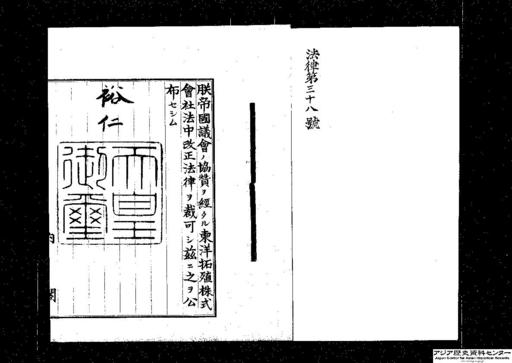 法律第三十八號
朕帝國議會ノ協賛ヲ經タル東洋拓殖株式
會社法中改正法律ヲ裁可シ茲ニ之ヲ公
布セシム
裕仁
天皇
御璽
内
閣
アジア歴史資料センター
Japan Center for Asian Historical Records